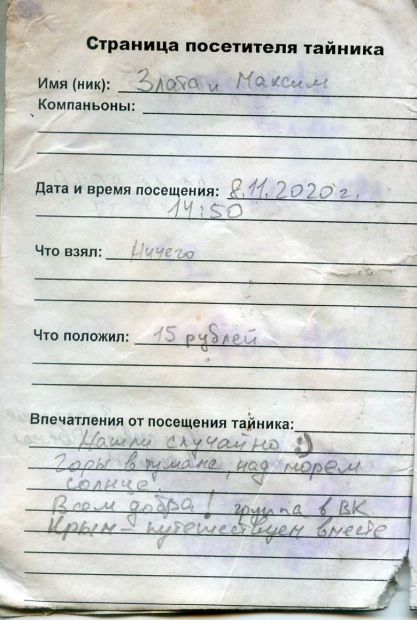 Страница посетителя тайника
Имя (ник): Злата и Максим
Компаньоны:
Дата и время посещения: 8.11.2020 г.
14:50
Что взял: Ничего
Что положил: 15 рублей
Впечатления от посещения тайника:
Нашли случайно :)
Горы в тумане, над морем
солнце!
Всем добра! группа в ВК
Крым – путешествуем вместе